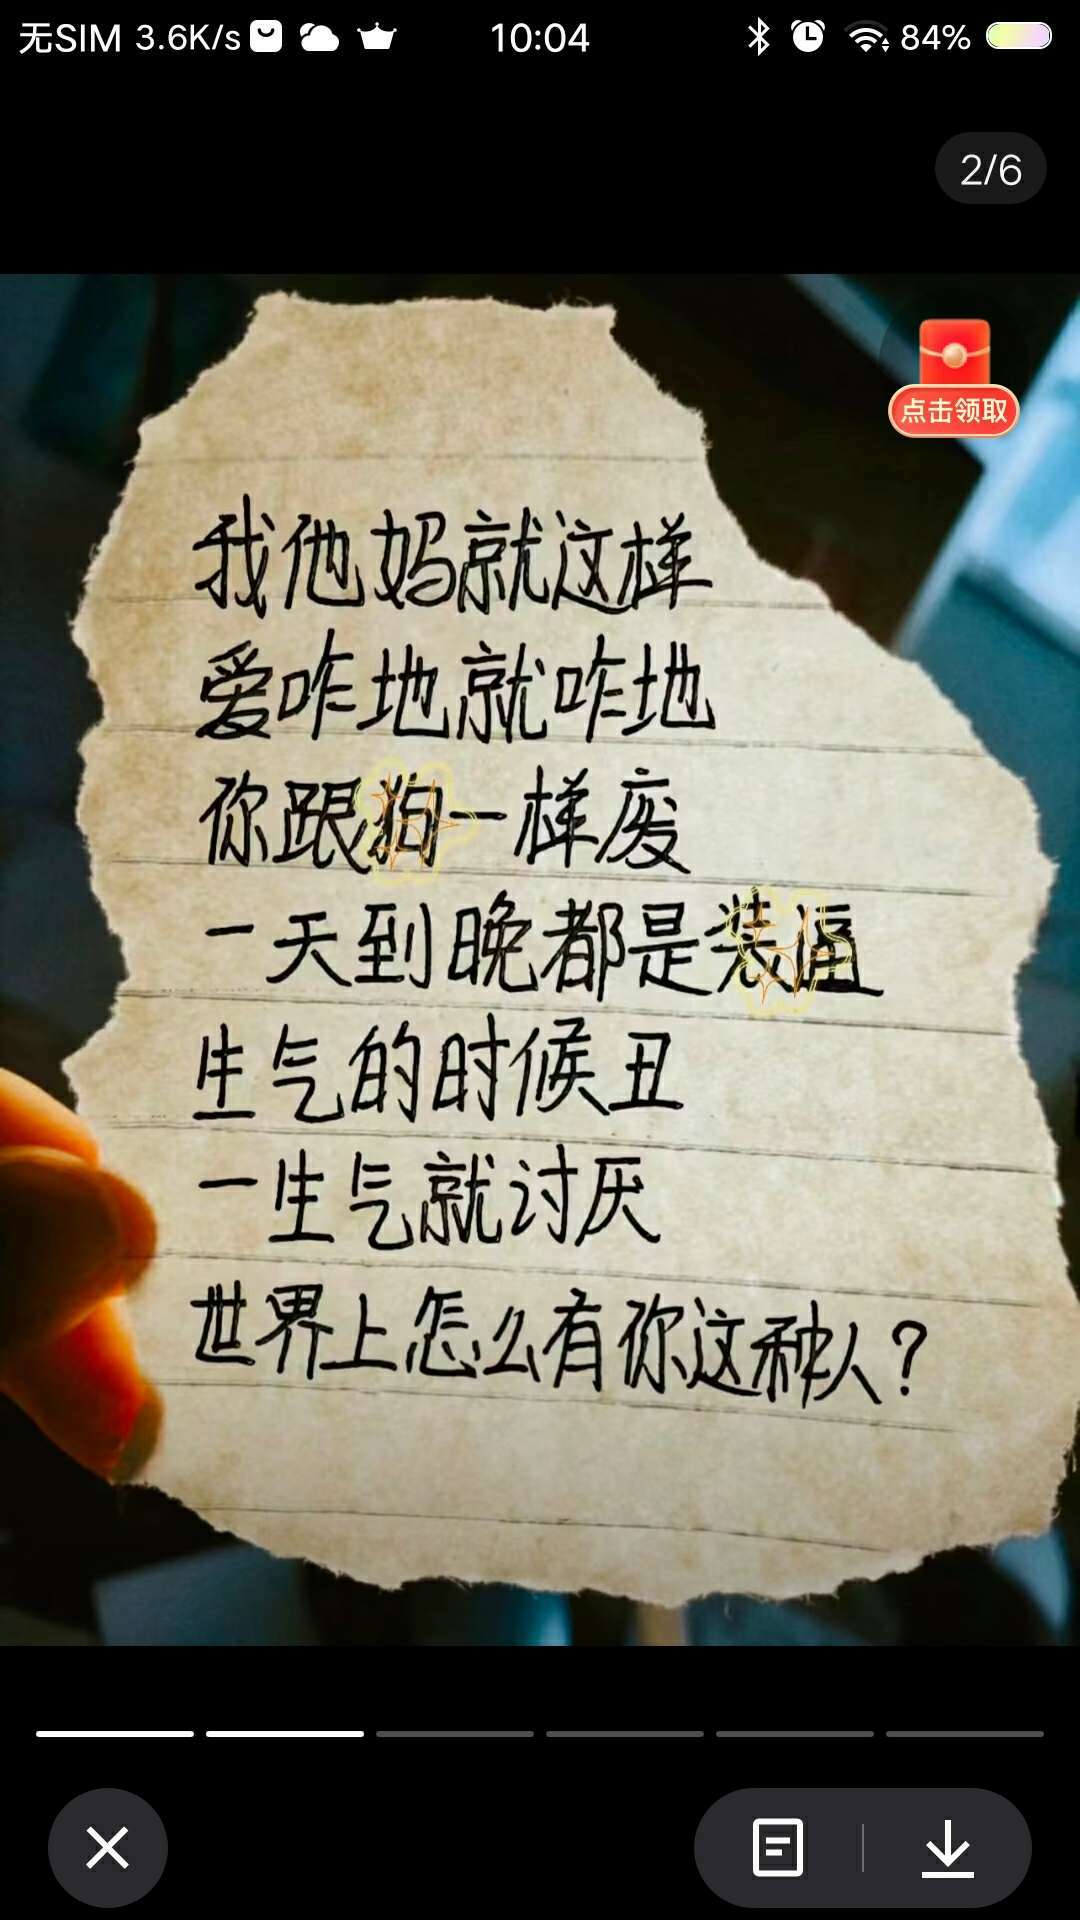 无SIM 3.6K/s 10:04 84%
2/6
点击领取
我他妈就这样
爱咋地就咋地
你跟狗一样废
一天到晚都是装逼
生气的时候丑
一生气就讨厌
世界上怎么有你这种人？